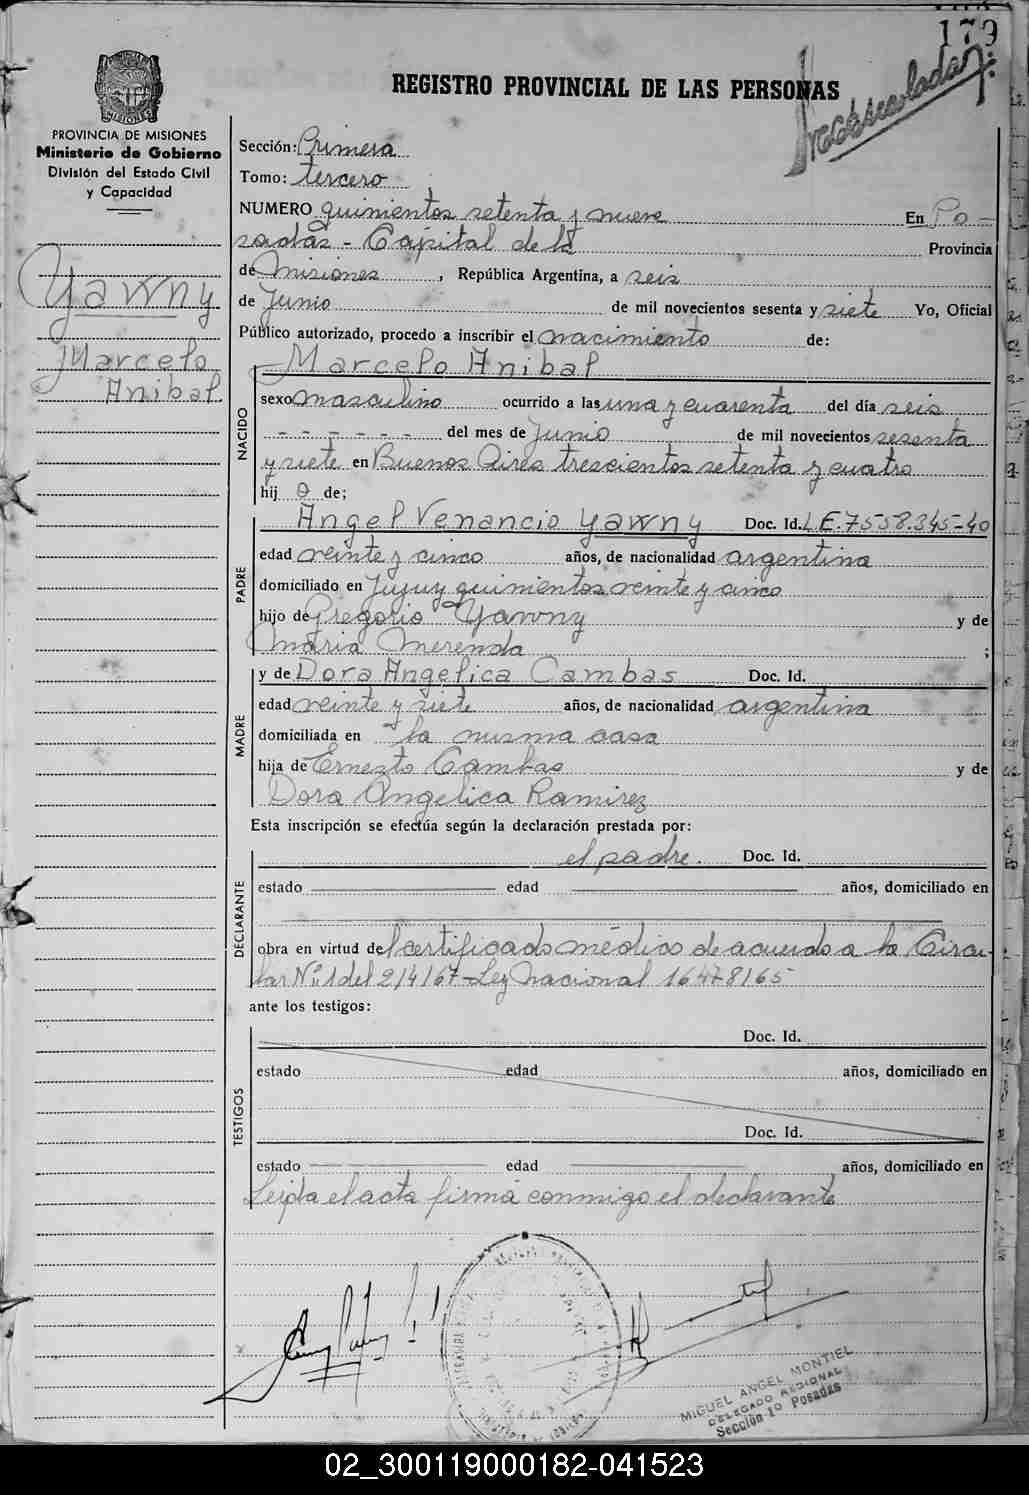 179
REGISTRO PROVINCIAL DE LAS PERSONAS
PROVINCIA DE MISIONES
Ministerio de Gobierno
División del Estado Civil
y Capacidad
Yawny
Marcelo
Anibal
Sección: Primera
Tomo: tercero
NUMERO quinientos setenta y nueve En Po-
sadas - Capital de la Provincia
de Misiones, República Argentina, a seis
de Junio de mil novecientos sesenta y siete Yo, Oficial
Público autorizado, procedo a inscribir el nacimiento de:
Marcelo Anibal
NACIDO
sexo masculino ocurrido a las una y cuarenta del día seis
- - - - - - del mes de Junio de mil novecientos sesenta
y siete en Buenos Aires trescientos setenta y cuatro
hij o de;
PADRE
Angel Venancio Yawny Doc. Id. L.E. 7.558.345-40
edad veinte y cinco años, de nacionalidad argentina
domiciliado en Jujuy quinientos veinte y cinco
hijo de Gregorio Yawny y de
Maria Merenda ;
y de Dora Angelica Cambas Doc. Id.
MADRE
edad veinte y siete años, de nacionalidad argentina
domiciliada en la misma casa
hija de Ernesto Cambas y de
Dora Angelica Ramirez
Esta inscripción se efectúa según la declaración prestada por:
DECLARANTE
el padre. Doc. Id.
estado edad años, domiciliado en
obra en virtud del certificado médico de acuerdo a la Circu-
lar Nº 1 del 2/4/67 - Ley Nacional 16478/65
ante los testigos:
TESTIGOS
Doc. Id.
estado edad años, domiciliado en
Doc. Id.
estado edad años, domiciliado en
Leida el acta firma conmigo el declarante
MIGUEL ANGEL MONTIEL
DELEGADO REGIONAL
Sección 1º Posadas
02_300119000182-041523